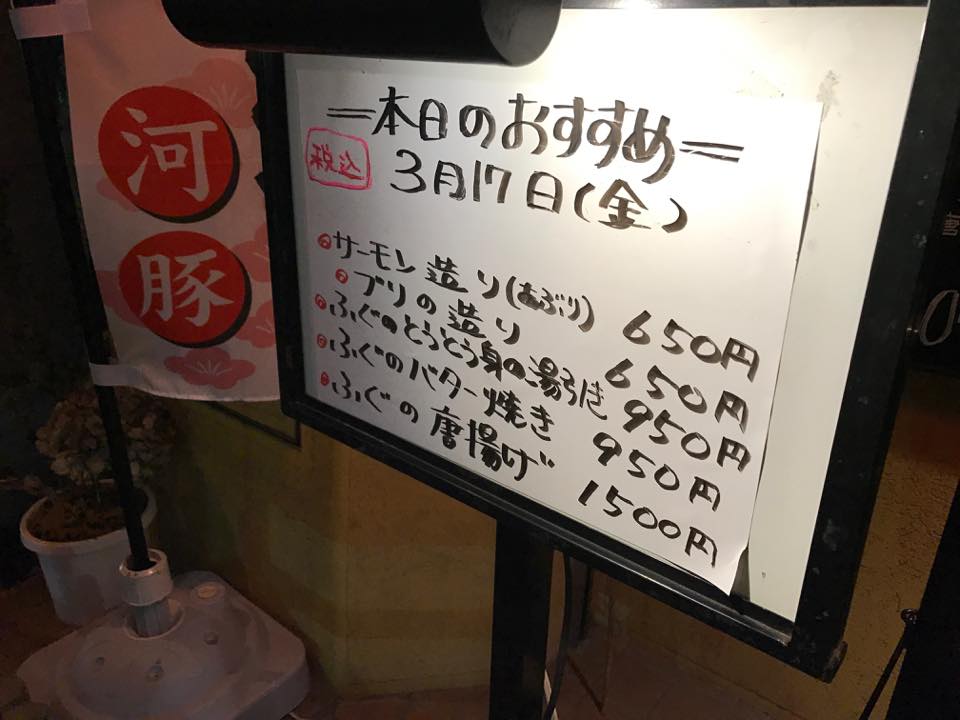 河豚
＝本日のおすすめ＝
税込
3月17日(金)
サーモン造り(あぶり) 650円
ブリの造り 650円
ふぐのとうとう身の湯引き 950円
ふぐのバター焼き 950円
ふぐの唐揚げ 1500円